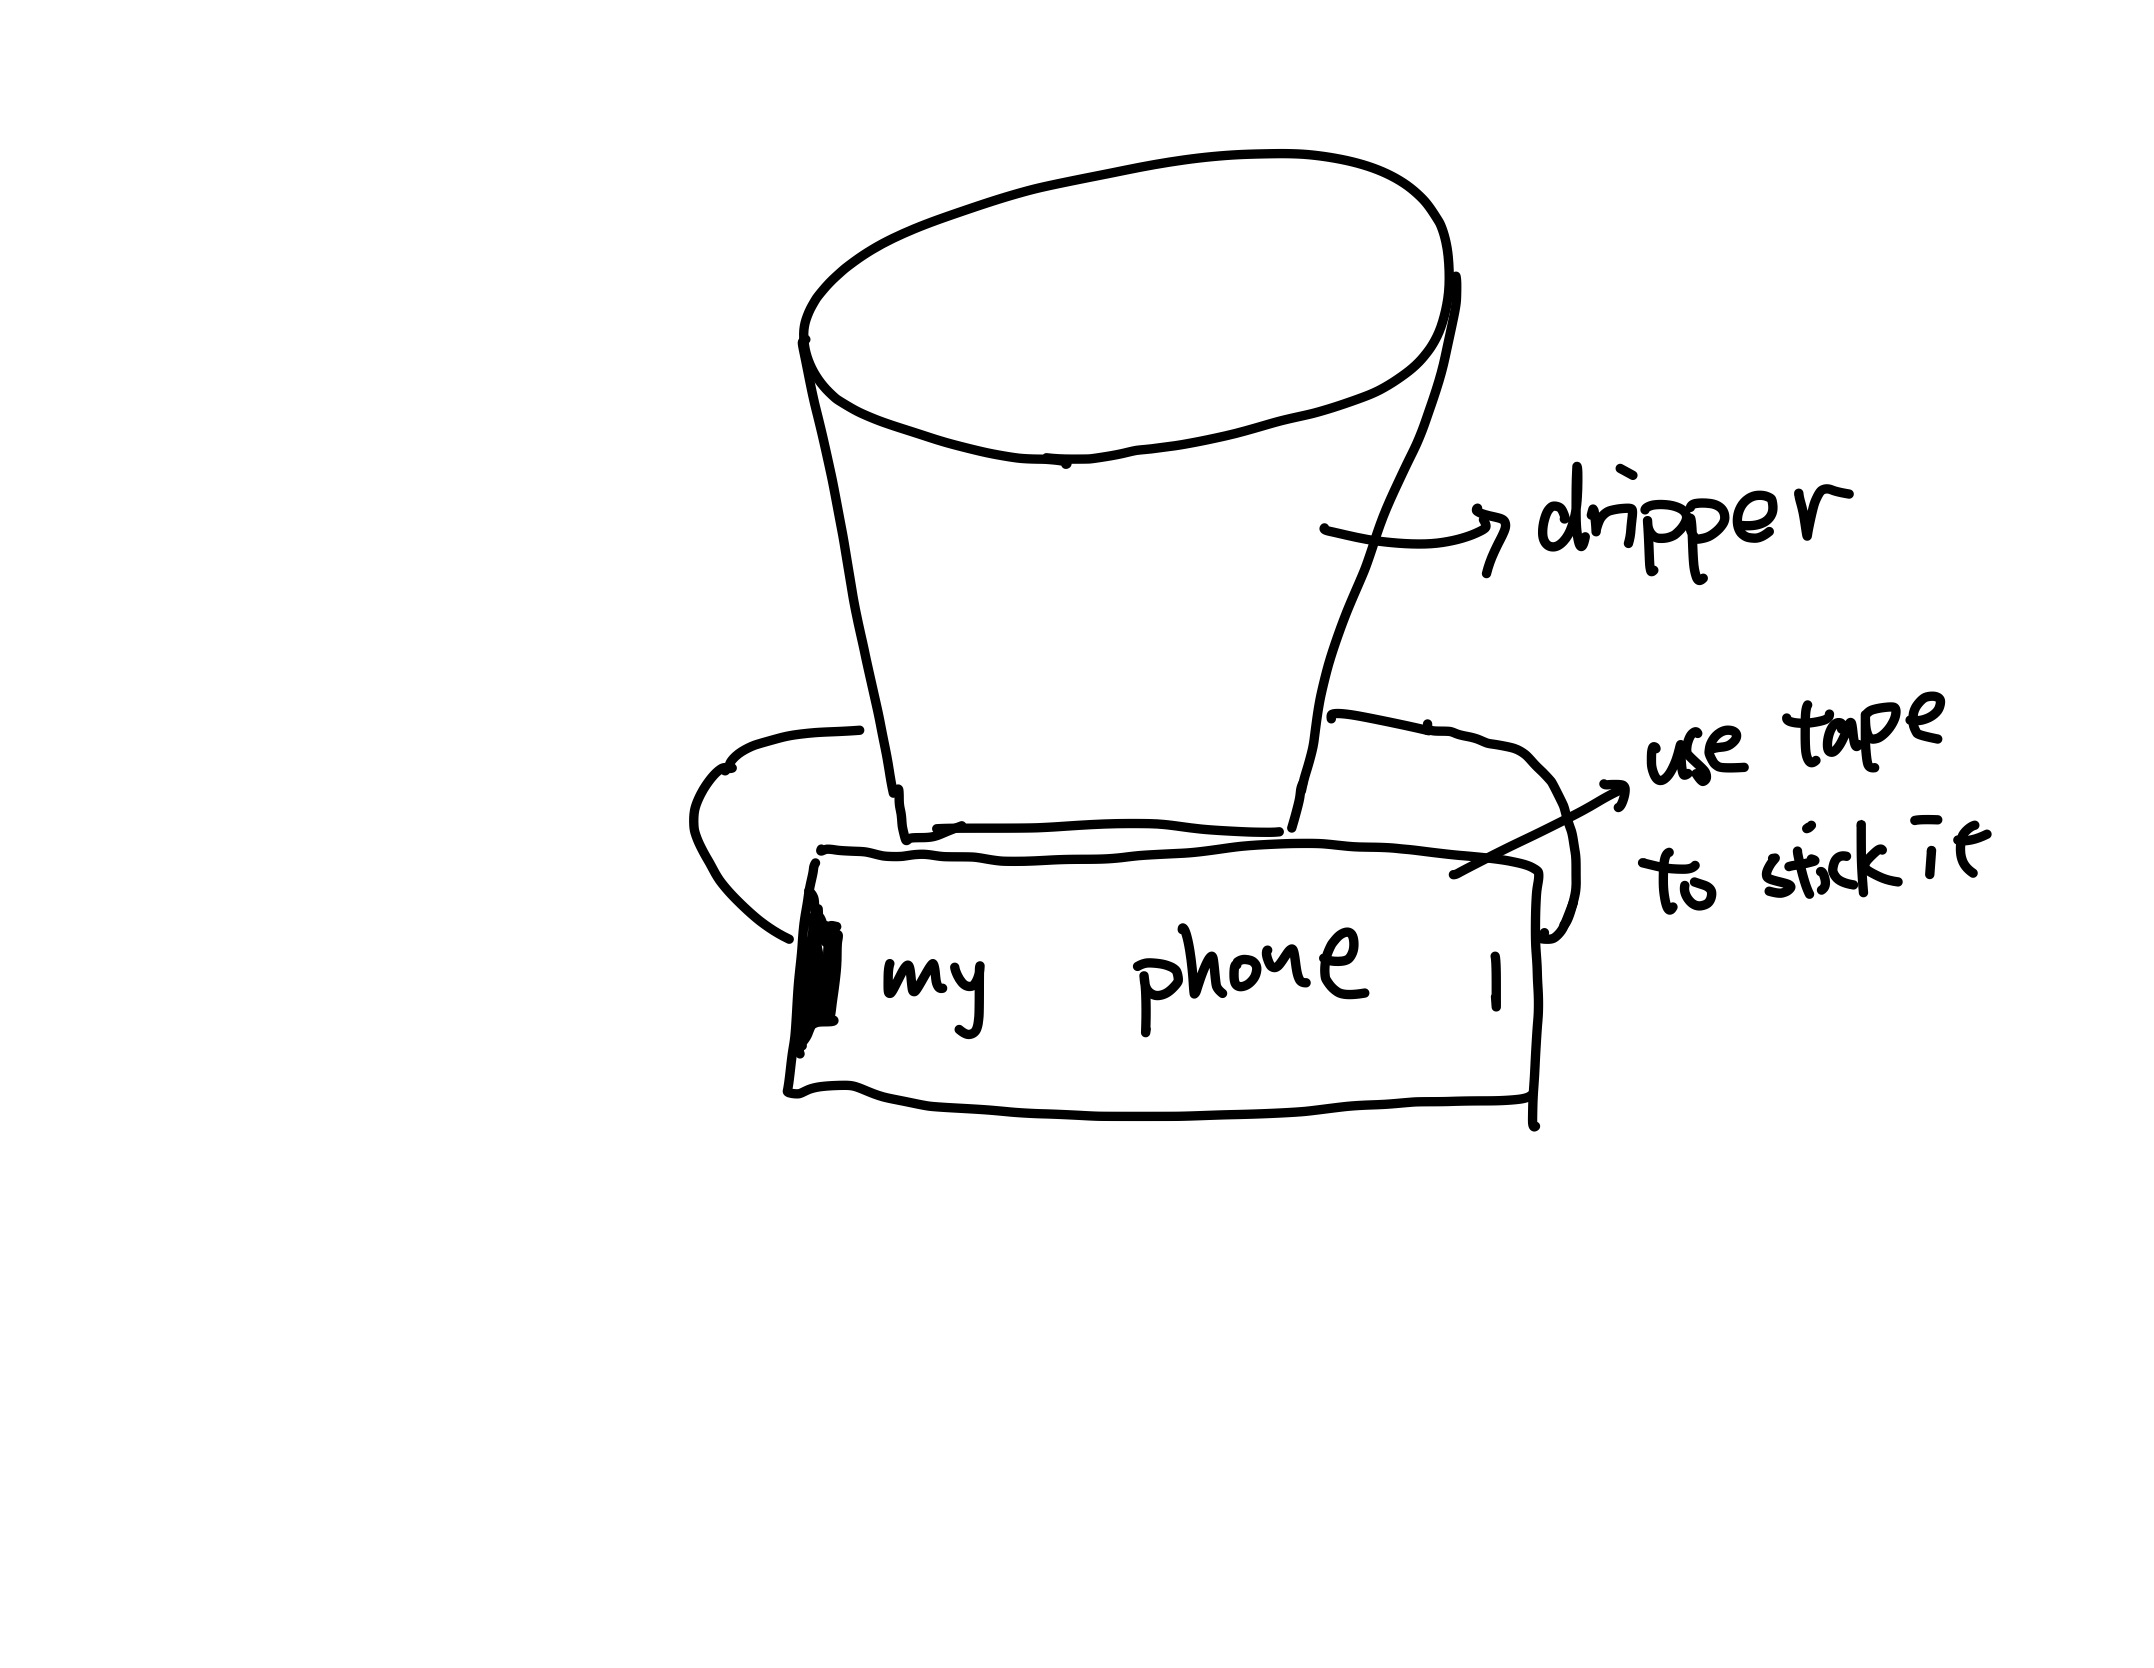 dripper
use tape
to stick it
my phone